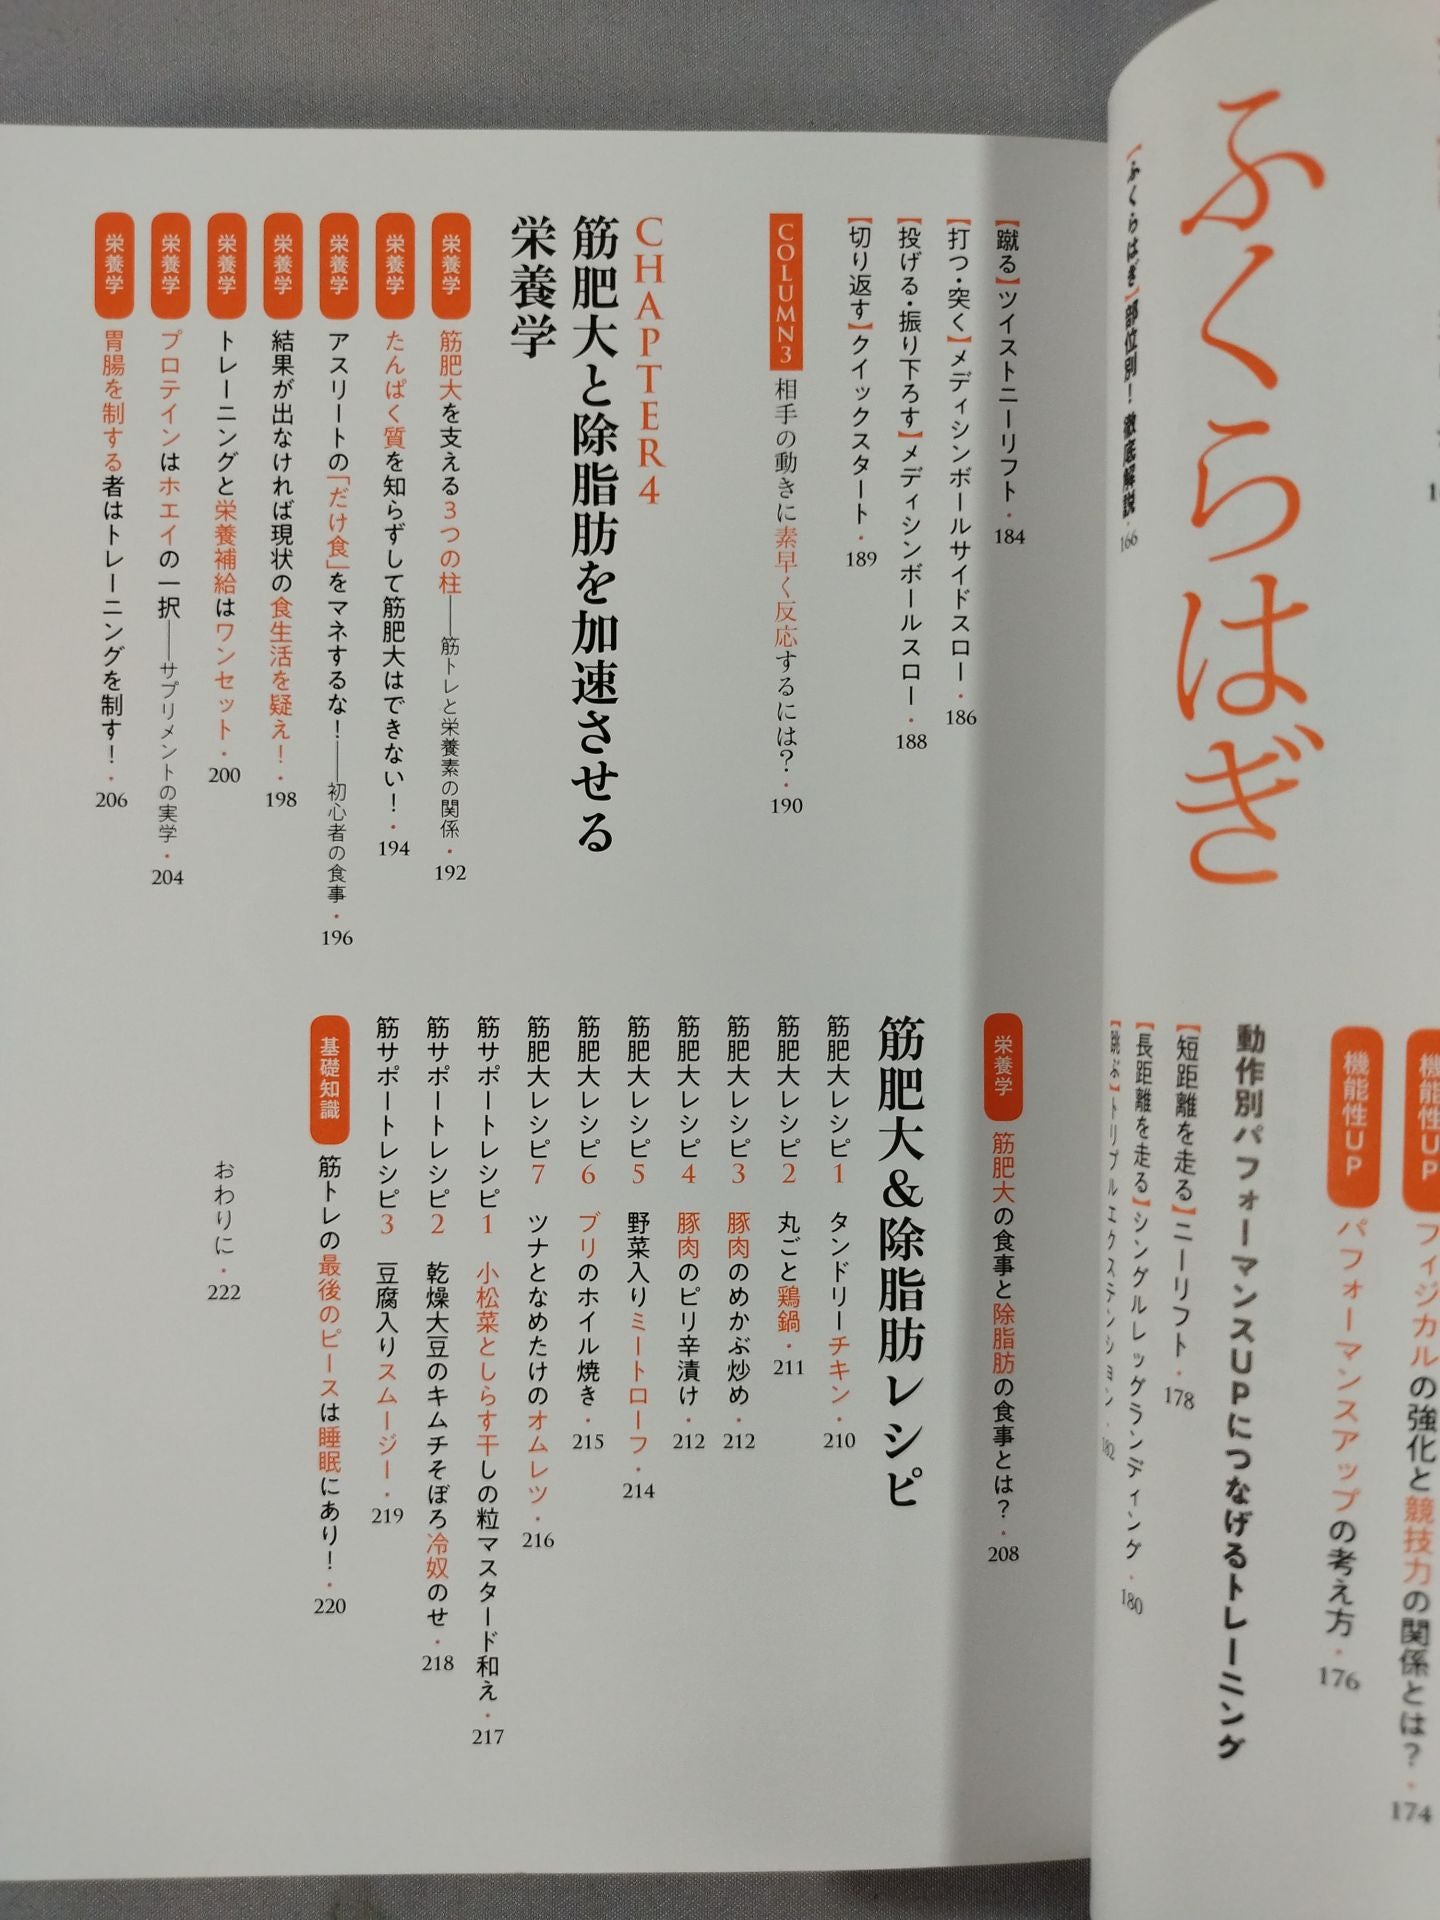 ふくらはぎ
【ふくらはぎ】部位別！徹底解説・166
機能性UP フィジカルの強化と競技力の関係とは？・174
機能性UP パフォーマンスアップの考え方・176
動作別パフォーマンスUPにつなげるトレーニング
【短距離を走る】ニーリフト・178
【長距離を走る】シングルレッグランディング・180
【跳ぶ】トリプルエクステンション・182
【蹴る】ツイストニーリフト・184
【打つ・突く】メディシンボールサイドスロー・186
【投げる・振り下ろす】メディシンボールスロー・188
【切り返す】クイックスタート・189
COLUMN3 相手の動きに素早く反応するには？・190
CHAPTER4
筋肥大と除脂肪を加速させる
栄養学
栄養学 筋肥大を支える3つの柱――筋トレと栄養素の関係・192
栄養学 たんぱく質を知らずして筋肥大はできない！・194
栄養学 アスリートの「だけ食」をマネするな！――初心者の食事・196
栄養学 結果が出なければ現状の食生活を疑え！・198
栄養学 トレーニングと栄養補給はワンセット・200
栄養学 プロテインはホエイの一択――サプリメントの実学・204
栄養学 胃腸を制する者はトレーニングを制す！・206
栄養学 筋肥大の食事と除脂肪の食事とは？・208
筋肥大＆除脂肪レシピ
筋肥大レシピ1 タンドリーチキン・210
筋肥大レシピ2 丸ごと鶏鍋・211
筋肥大レシピ3 豚肉のめかぶ炒め・212
筋肥大レシピ4 豚肉のピリ辛漬け・212
筋肥大レシピ5 野菜入りミートローフ・214
筋肥大レシピ6 ブリのホイル焼き・215
筋肥大レシピ7 ツナとなめたけのオムレツ・216
筋サポートレシピ1 小松菜としらす干しの粒マスタード和え・217
筋サポートレシピ2 乾燥大豆のキムチそぼろ冷奴のせ・218
筋サポートレシピ3 豆腐入りスムージー・219
基礎知識 筋トレの最後のピースは睡眠にあり！・220
おわりに・222